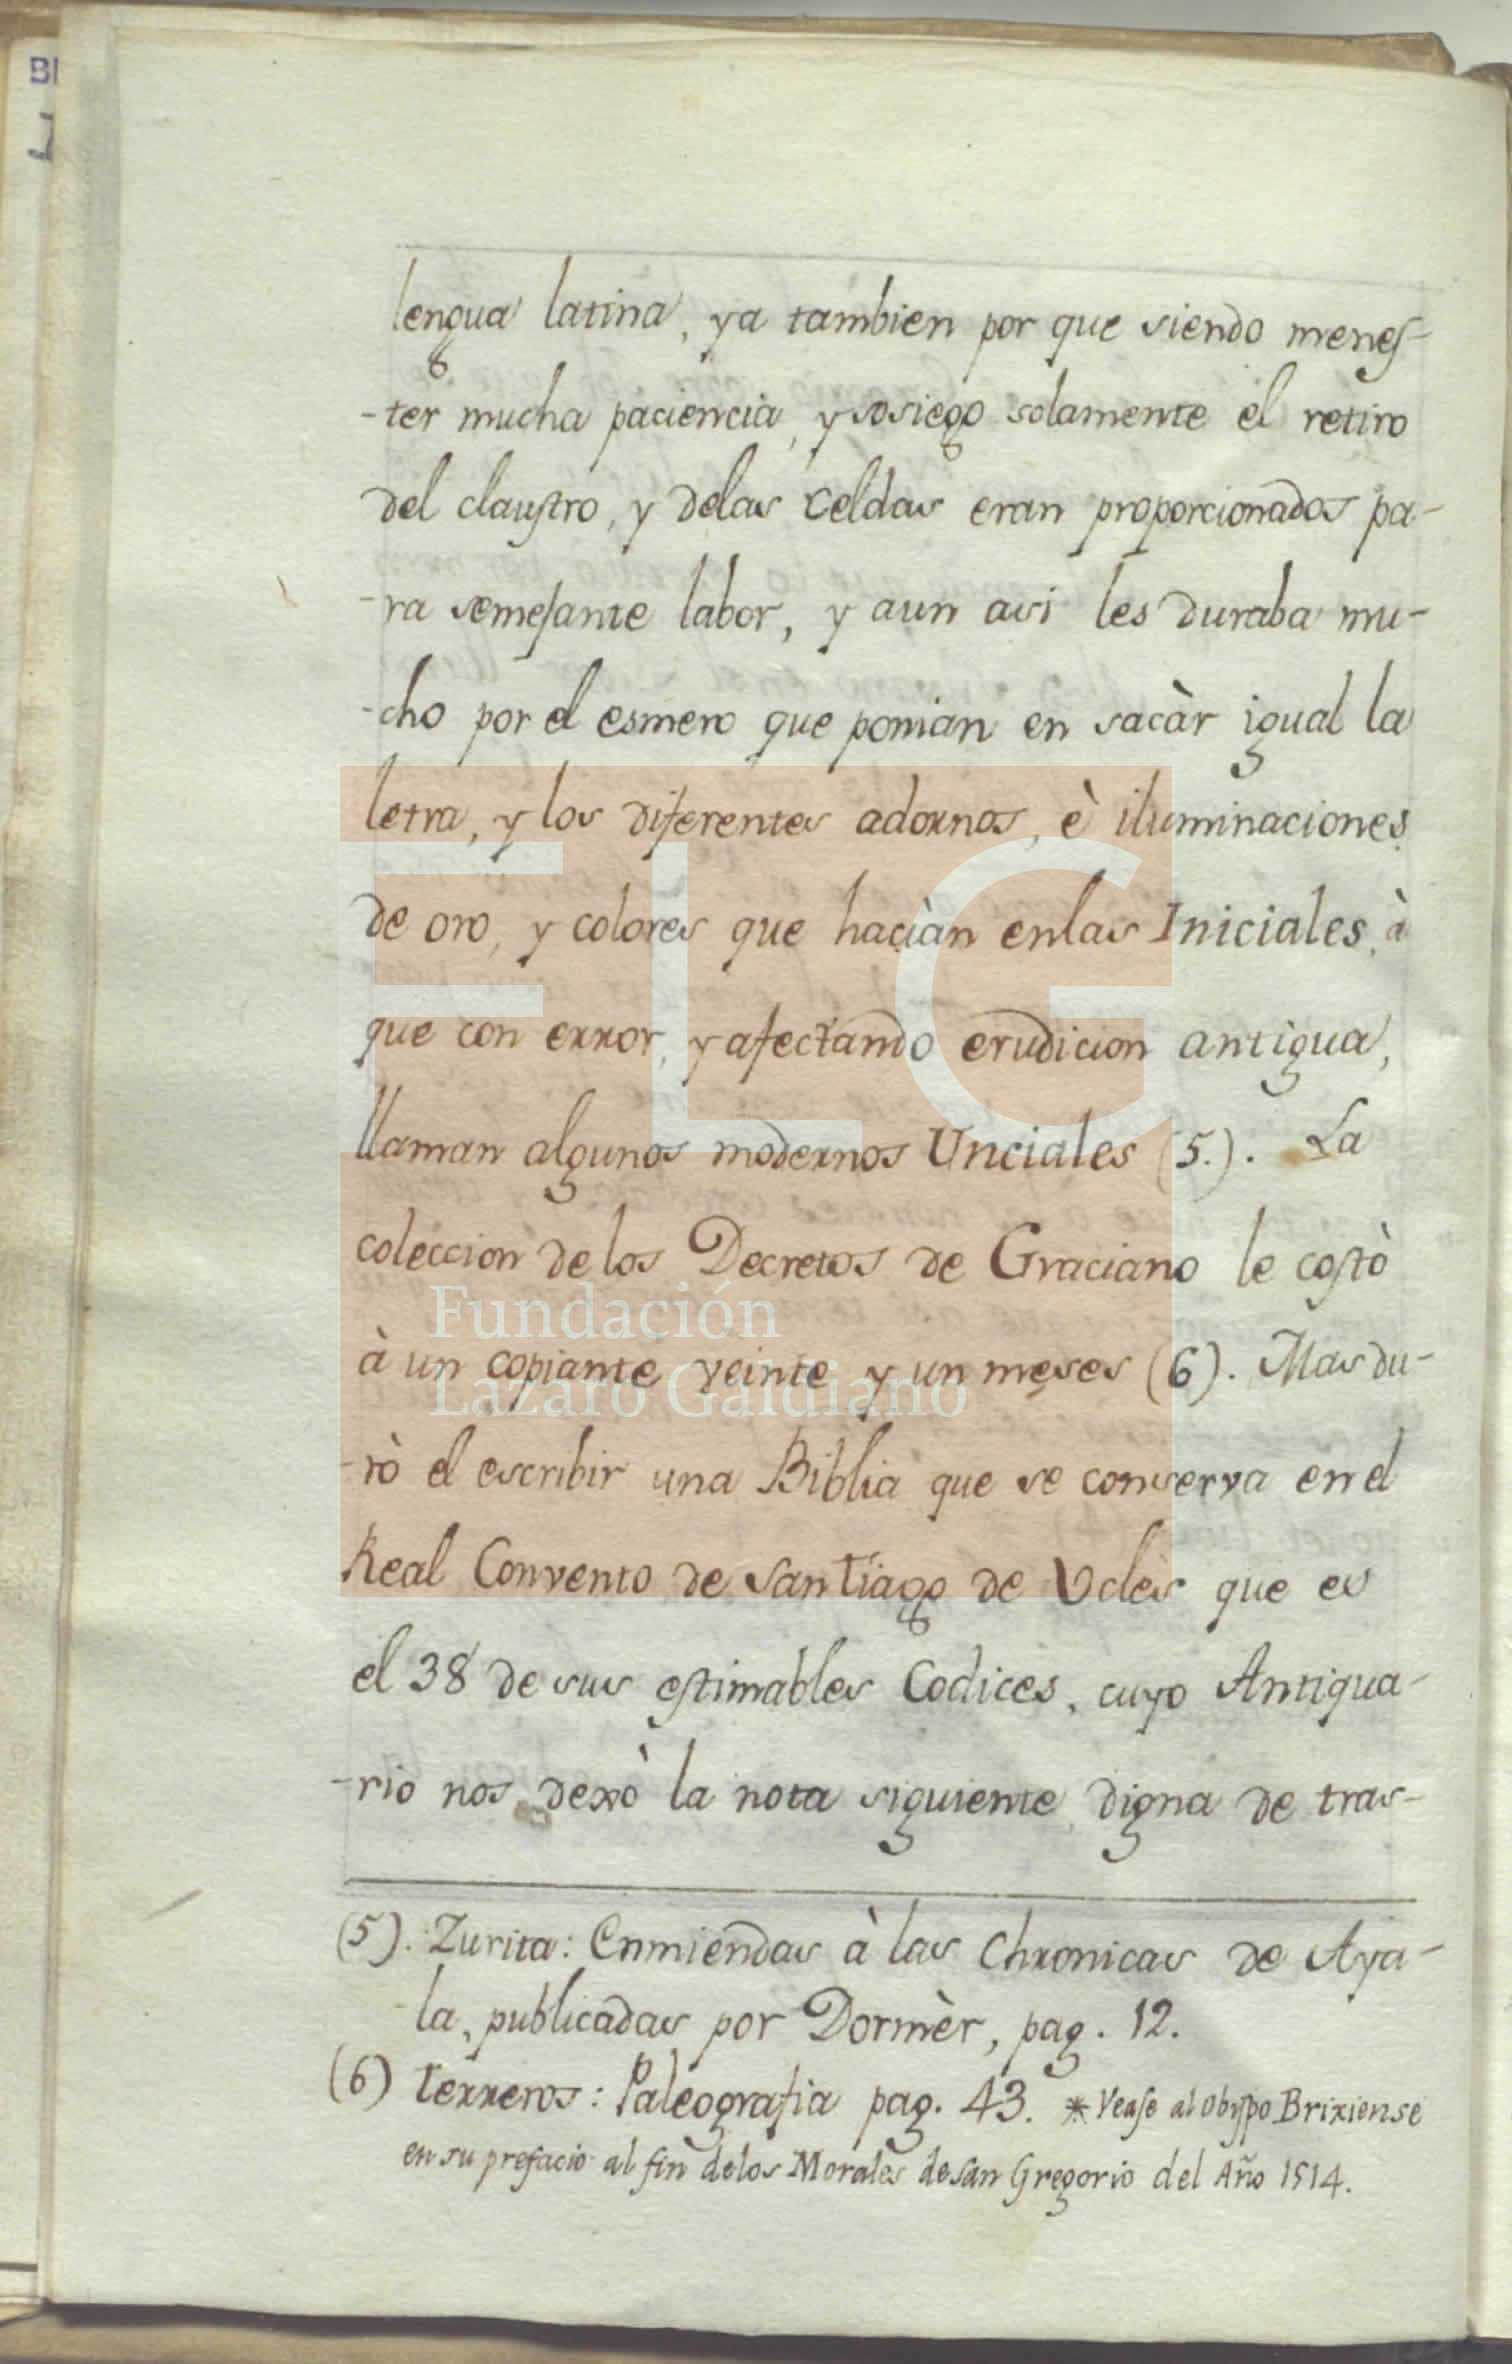 BI
lengua latina, ya tambien por que siendo menes-
-ter mucha paciencia, y sosiego solamente el retiro
del claustro, y delas celdas eran proporcionados pa-
-ra semejante labor, y aun asi les duraba mu-
-cho por el esmero que ponian en sacàr igual la
letra, y los diferentes adornos, è iluminaciones
de oro, y colores que haciàn enlas Iniciales, à
que con error, y afectando erudicion antigua,
llaman algunos modernos Unciales (5.). La
coleccion de los Decretos de Graciano le costò
à un copiante veinte y un meses (6). Mas du-
-rò el escribir una Biblia que se conserva en el
Real Convento de Santiago de Ucles que es
el 38 de sus estimables Codices, cuyo Antiqua-
-rio nos dexò la nota siguiente digna de tras-
(5). Zurita: Enmiendas à las Chronicas de Aya-
la, publicadas por Dormèr, pag. 12.
(6) Terreros: Paleografia pag. 43. * Vease al obispo Brixiense
en su prefacio al fin delos Morales de San Gregorio del Año 1514.
FLG
Fundación
Lázaro Galdiano